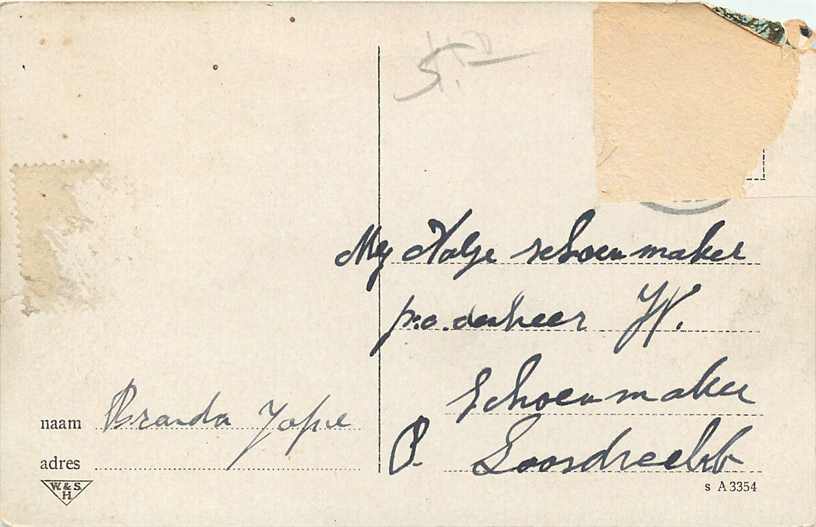 My Kolje schoenmaker
p.a. den heer W.
Schoenmaker
P. Loosdrecht
naam Branda Jopie
adres
W. & S.
H
s A 3354